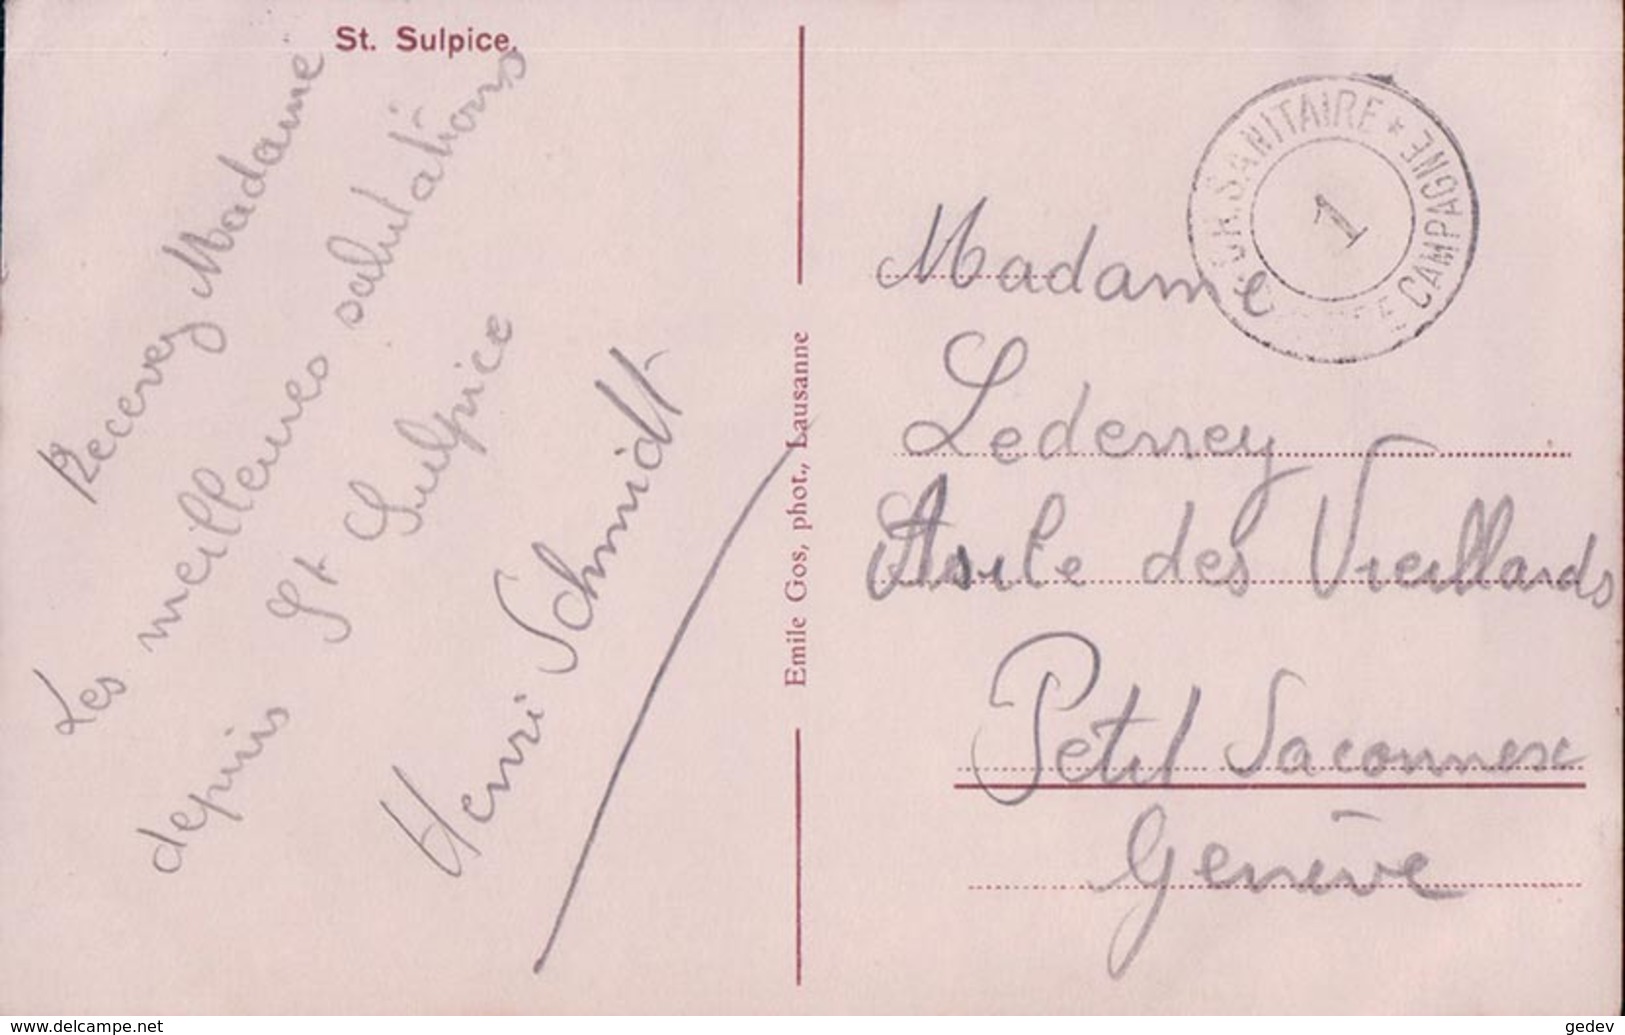 St. Sulpice.
Recevez Madame
Les meilleures salutations
depuis St Sulpice
Henri Schmidt
Emile Gos, phot., Lausanne
SANITAIRE * CAMPAGNE
1
Madame
Lederrey
Asile des Vieillards
Petit Saconnex
Genève
www.delcampe.net
gedev